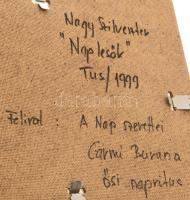 Nagy Szilveszter
"Naplesők"
Tus/1999
Felirat: A Nap szerettei
Carmi Burana
ősi napritus